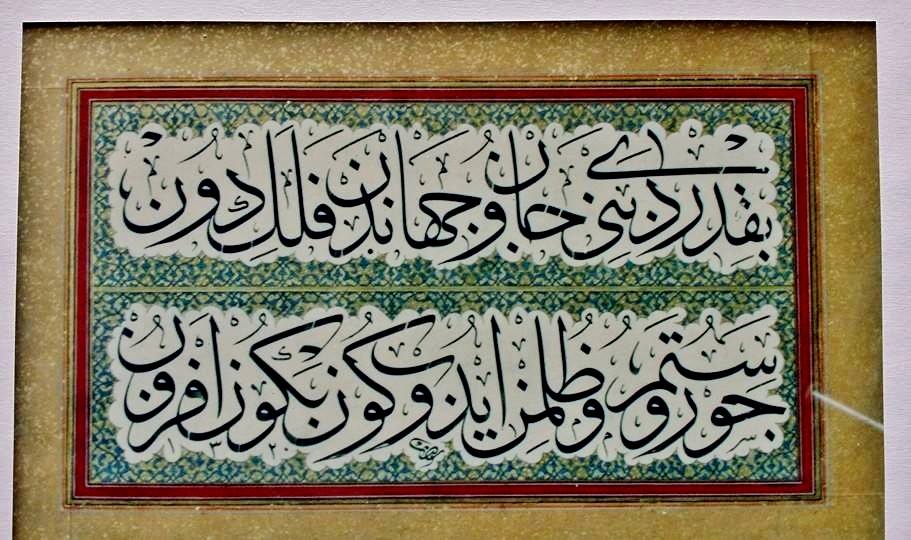 بقدردی بنی جان و جهاندن فلك دون
جور و ستم و ظلمن ایدر كون بكون افزون